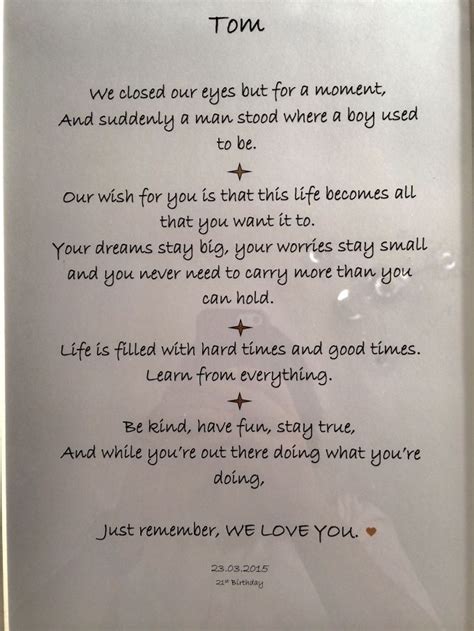 Tom
We closed our eyes but for a moment,
And suddenly a man stood where a boy used
to be.
Our wish for you is that this life becomes all
that you want it to.
Your dreams stay big, your worries stay small
and you never need to carry more than you
can hold.
Life is filled with hard times and good times.
Learn from everything.
Be kind, have fun, stay true,
And while you're out there doing what you're
doing,
Just remember, WE LOVE YOU.
23.03.2015
21st Birthday